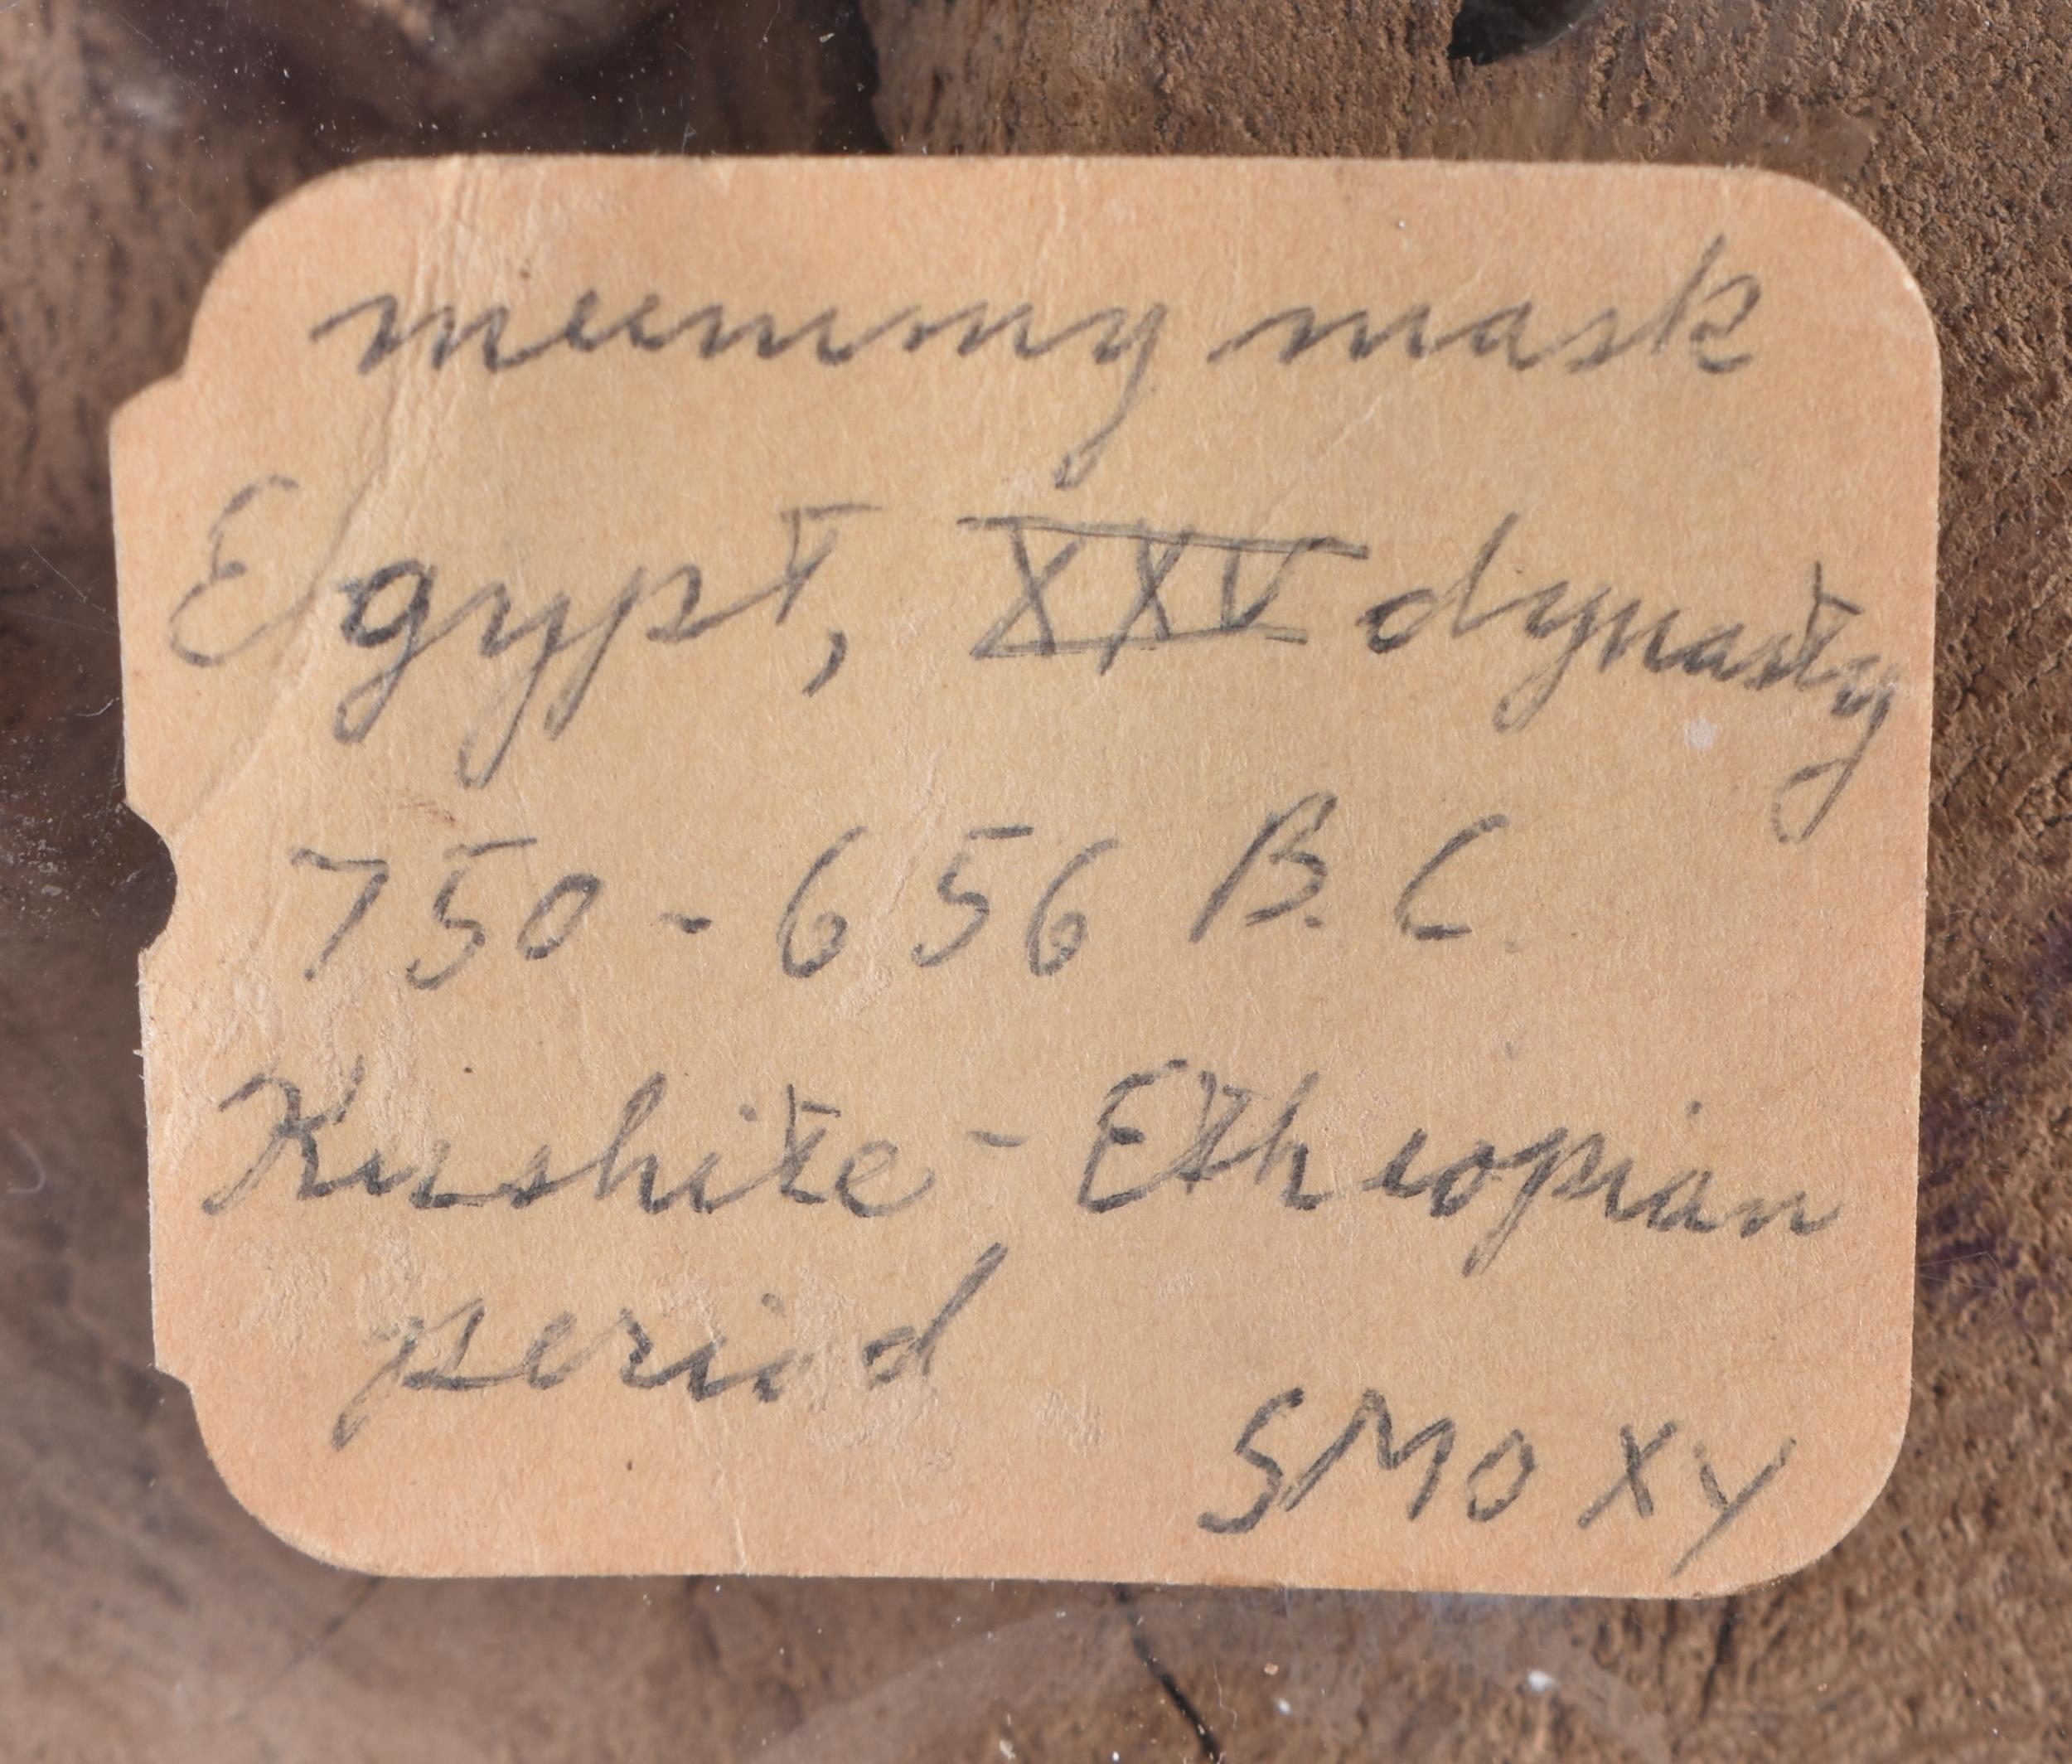 mummy mask
Egypt, XXV dynasty
750 - 656 B.C.
Kushite - Ethiopian
period
SMOXY